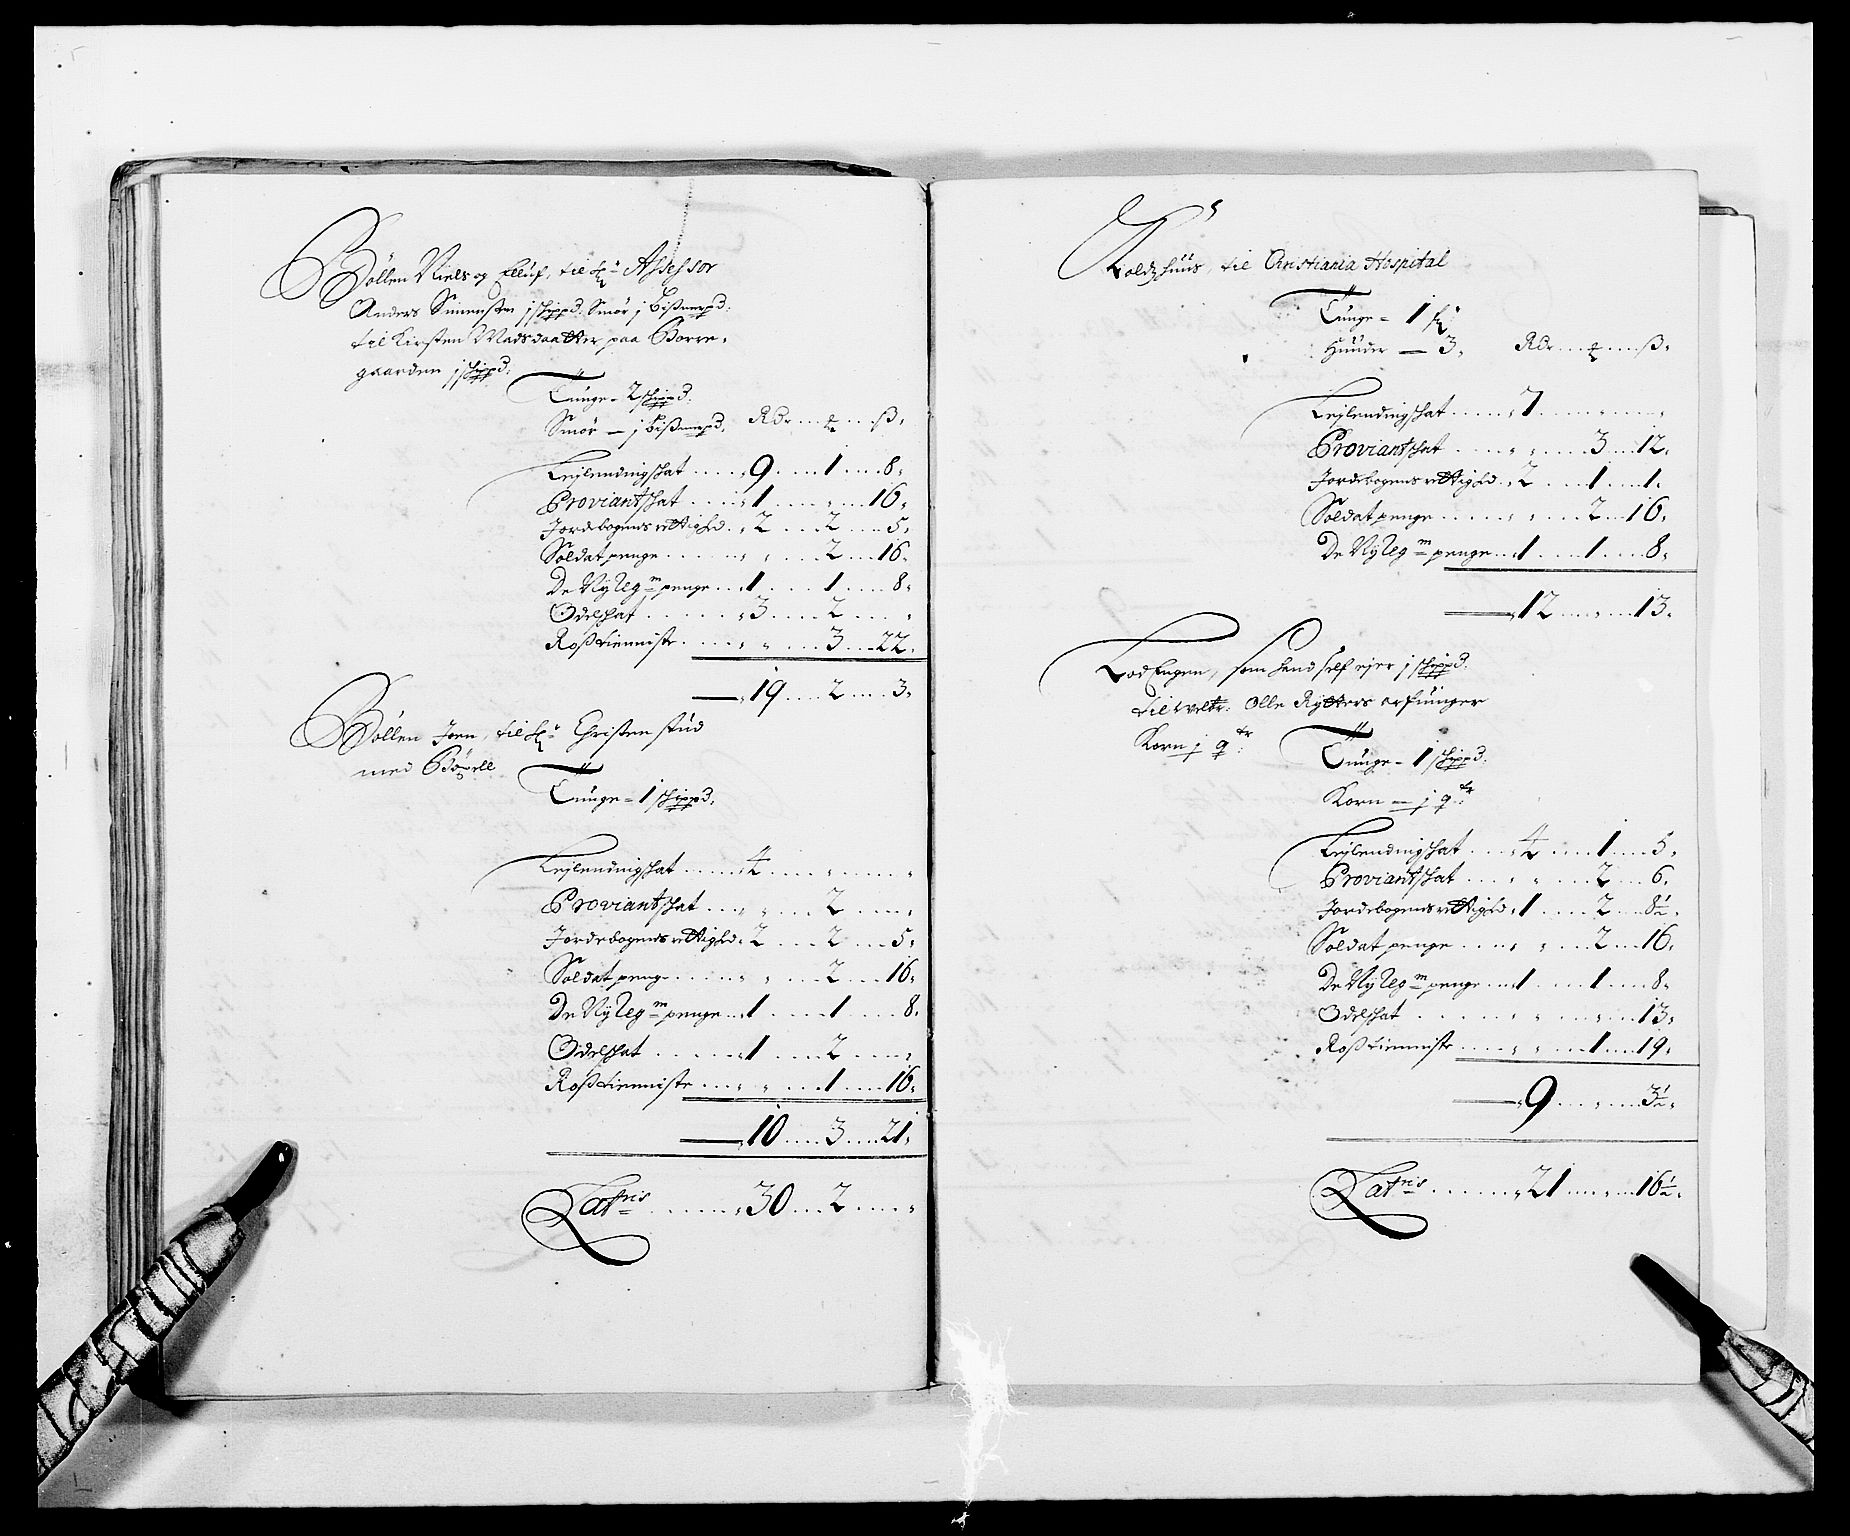 Böllen Niels og Elluf, til Hr Assessor
Anders Simensen j schippd. Smør j Bißmerpd.
til Kirsten Madsdaatter paa Borre-
gaarden j schippd.
Tunge - 2 schippd.
Smör — j Bißmerpd. Rdr ... ß.
Lejlendingschat ..... 9 .... 1 .... 8.
Proviantschat .... 1 ........ 16.
Jordebogens rettighd. 2 .... 2 .... 5.
Soldat penge ........ 2 .... 16.
De Ny Leg m penge ... 1 .... 1 .... 8.
Odelschat ........ 3 .... 2 ....
Roßtienniste ........ 3 .... 22.
— 19 .... 2 .... 3.
Böllen Joen, til Hr Christen Stud
med Böxell
Tunge - 1 schippd.
Lejlendingschat ..... 4 ........
Proviantschat ........ 2 ....
Jordebogens rettighd. 2 .... 2 .... 5.
Soldat penge ........ 2 .... 16.
De Ny Leg m penge ... 1 .... 1 .... 8.
Odelschat ........ 1 .... 2 ....
Roßtienniste ........ 1 .... 16.
— 10 .... 3 .... 21.
Latris ........ 30 .... 2 ....
Koldzhuus, til Cristiania Hospital
Tunge - 1 ß
Huuder — 3. Rdr ... ß.
Lejlendingschat ..... 7 ........
Proviantschat ........ 3 .... 12.
Jordebogens rettighd. 2 .... 1 .... 1.
Soldat penge ........ 2 .... 16.
De Ny Leg m penge ... 1 .... 1 .... 8.
— 12 ........ 13.
Lod Engen, som hand self ejer j schippd.
til welb: Olle Rytters arfuinger
Korn j qtr:
Tunge - 1 schippd.
Korn — j qtr:
Lejlendingschat .... 4 .... 1 .... 5.
Proviantschat ........ 2 .... 6.
Jordebogens rettighd. 1 .... 2 .... 8½.
Soldat penge ........ 2 .... 16.
De Ny Leg m penge ... 1 .... 1 .... 8.
Odelschat ............ 13.
Roßtienniste ........ 1 .... 19.
— 9 ........ 3½.
Latris ........ 21 ........ 16½.